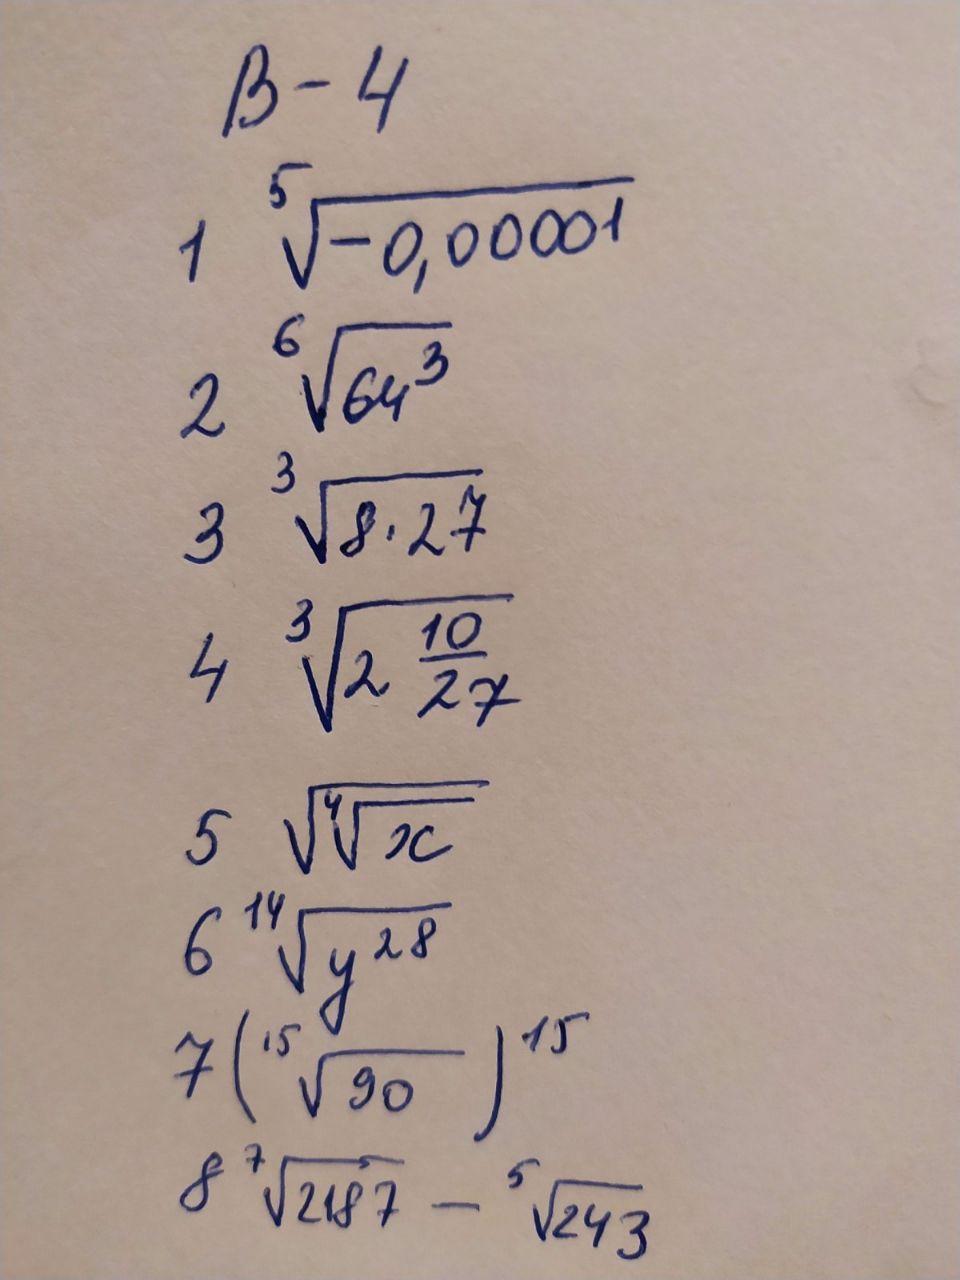 В-4
1 ⁵√-0,00001
2 ⁶√64³
3 ³√8·27
4 ³√2 10/27
5 √⁴√x
6 ¹⁴√y²⁸
7 (¹⁵√90)¹⁵
8 ⁷√2187 - ⁵√243